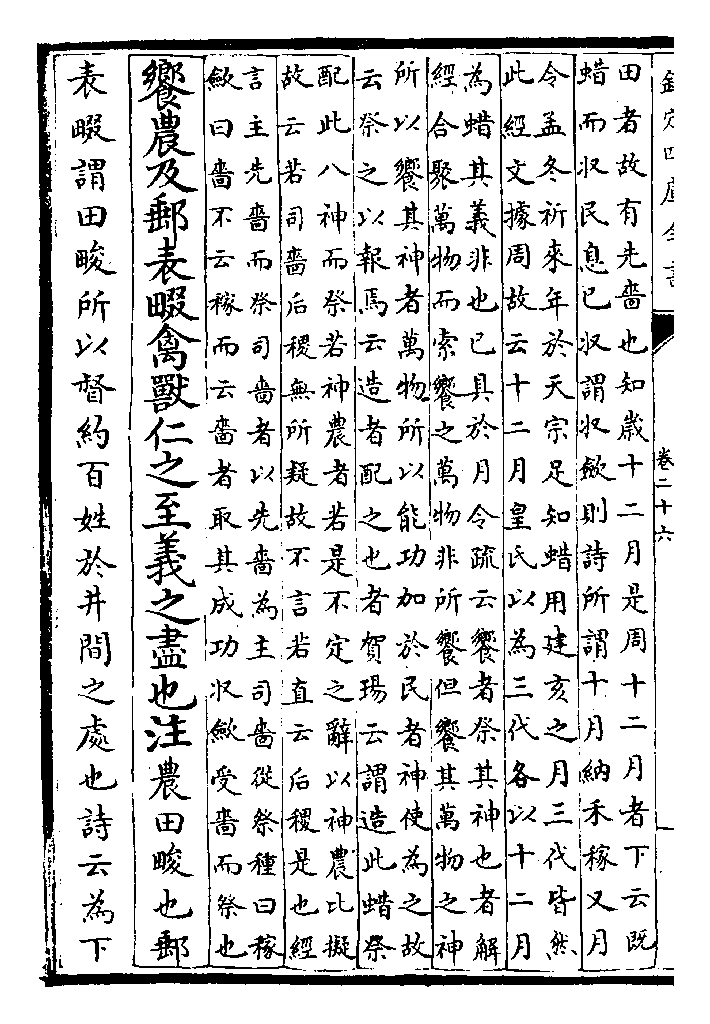 欽定四庫全書
卷二十六
田者故有先嗇也知歲十二月是周十二月者下云既
蜡而収民息已収謂収斂則詩所謂十月納禾稼又月
令孟冬祈來年於天宗足知蜡用建亥之月三代皆然
此經文據周故云十二月皇氏以為三代各以十二月
為蜡其義非也已具於月令疏云饗者祭其神也者解
經合聚萬物而索饗之萬物非所饗但饗其萬物之神
所以饗其神者萬物所以能功加於民者神使為之故
云祭之以報焉云造者配之也者賀瑒云謂造此蜡祭
配此八神而祭若神農者若是不定之辭以神農比擬
故云若司嗇后稷無所疑故不言若直云后稷是也經
言主先嗇而祭司嗇者以先嗇為主司嗇從祭種曰稼
斂曰嗇不云稼而云嗇者取其成功収斂受嗇而祭也
饗農及郵表畷禽獸仁之至義之盡也注農田畯也郵
表畷謂田畯所以督約百姓於井間之處也詩云為下